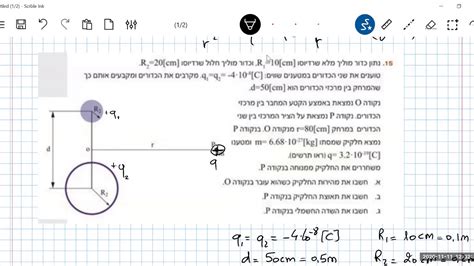 (1/2) - Scrible Ink
(1/2)
15. נתון כדור מוליך מלא שרדיוסו R₁=10[cm], וכדור מוליך חלול שרדיוסו R₂=20[cm].
טוענים את שני הכדורים במטענים שווים: q₁=q₂= -4·10⁻⁸[C]. מקרבים את הכדורים ומקבעים אותם כך
שהמרחק בין מרכזי הכדורים הוא d=50[cm].
נקודה O נמצאת באמצע הקטע המחבר בין מרכזי
הכדורים. נקודה P נמצאת על הציר המרכזי בין שני
הכדורים במרחק r=80[cm] מנקודה O. בנקודה P
נמצא חלקיק שמסתו m= 6.68·10⁻²⁷[kg] ומטענו
q= 3.2·10⁻¹⁹[C] (ראו תרשים).
משחררים את החלקיק ממנוחה בנקודה P.
א. חשבו את מהירות החלקיק כשהוא עובר בנקודה O.
ב. חשבו את תאוצת החלקיק בנקודה P.
ג. חשבו את השדה החשמלי בנקודה P.
+q₁
d
o
r
P
q
+q₂
R₂
q₁ = q₂ = -4·10⁻⁸ [C]
R₁ = 10cm = 0.1m
d = 50cm = 0.5m
R₂ = 20cm
2020-11-11